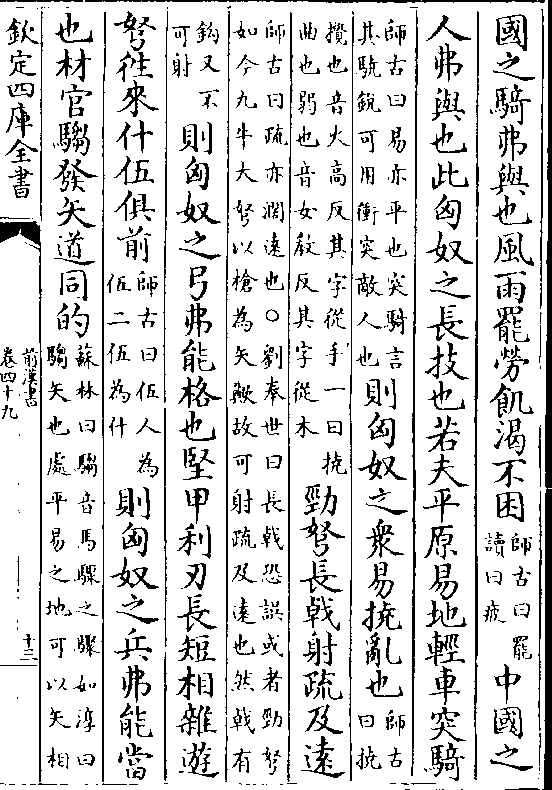 國之騎弗與也風雨罷勞飢渴不困師古曰罷讀曰疲中國之
人弗與也此匈奴之長技也若夫平原易地輕車突騎
師古曰易亦平也突騎言其驍銳可用衝突敵人也則匈奴之衆易撓亂也師古曰撓
攪也音火高反其字從手一曰撓曲也弱也音女敎反其字從木勁弩長戟射疏及遠
師古曰疏亦濶遠也○劉奉世曰長戟恐誤或者勁弩如今九牛大弩以槍為矢歟故可射疏及遠也然戟有
鈎又不可射則匈奴之弓弗能格也堅甲利刃長短相雜遊
弩往來什伍俱前師古曰伍人為伍二伍為什則匈奴之兵弗能當
也材官騶發矢道同的蘇林曰騶音馬驟之驟如淳曰騶矢也處平易之地可以矢相
欽定四庫全書
前漢書
卷四十九
十三